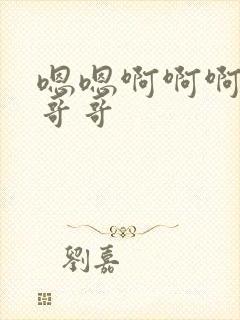 嗯嗯啊啊啊
哥哥
劉嘉